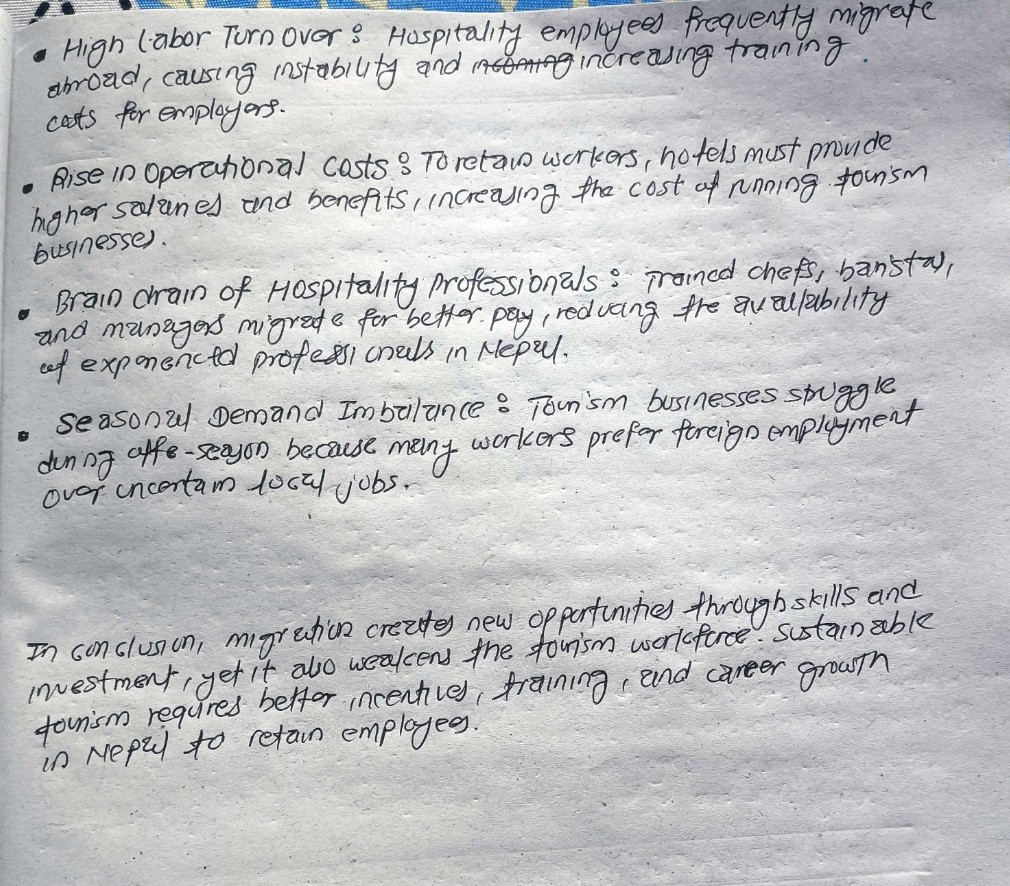 • High Labor Turn Over : Hospitality employees frequently migrate
abroad, causing instability and increasing training
costs for employers.
• Rise in Operational Costs : To retain workers, hotels must provide
higher salaries and benefits, increasing the cost of running tourism
businesses.
• Brain drain of Hospitality Professionals : Trained chefs, baristas,
and managers migrate for better pay, reducing the availability
of experienced professionals in Nepal.
• Seasonal Demand Imbalance : Tourism businesses struggle
during offe-season because many workers prefer foreign employment
over uncertain local jobs.
In conclusion, migration creates new opportunities through skills and
investment, yet it also weakens the tourism workforce. Sustainable
tourism requires better incentives, training, and career growth
in Nepal to retain employees.